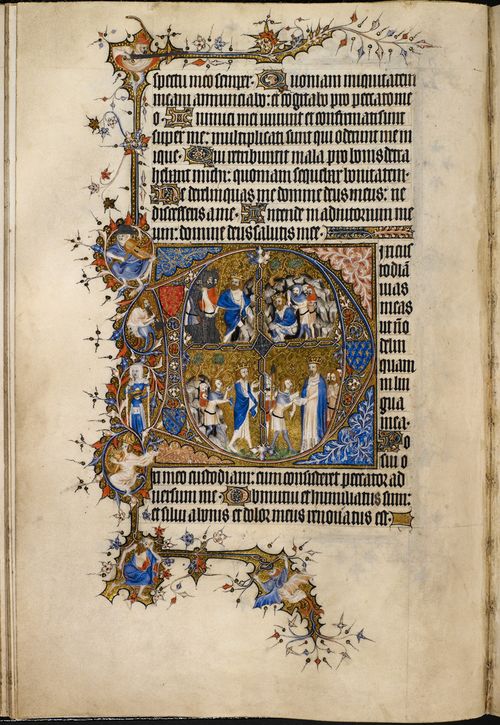 spectu meo semper. Quoniam iniquitatem
meam annunciabo: et cogitabo pro peccato me
o. Inimici mei vivunt et confirmati sunt
super me: multiplicati sunt qui oderunt me in
ique. Qui retribuunt mala pro bonis detra
hebant michi: quoniam sequebar bonitatem.
Ne derelinquas me domine deus meus: ne
discesseris a me. Intende in adiutorium me
um: domine deus salutis mee.
D ixi cus
todiam
vias
meas
ut no
delin
quam
in lin
gua
mea.
Po
sui o
ri meo custodiam: cum consisteret peccator ad
versum me. Obmutui et humiliatus sum:
et silui a bonis et dolor meus renovatus est.